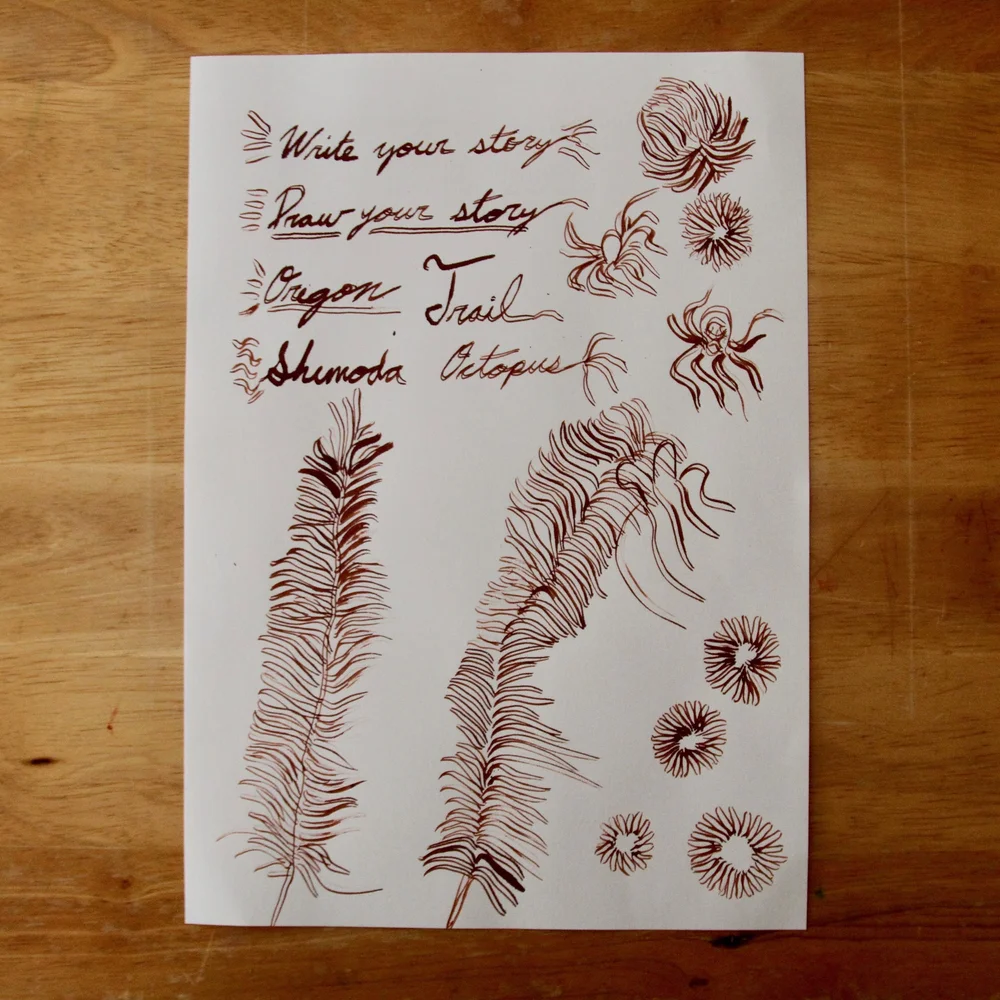 Write your story
Draw your story
Oregon Trail
Shimoda Octopus